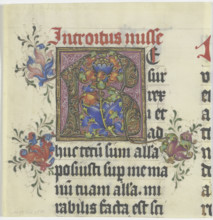 Introitus misse
R E
sur
rex
i et
ad
huc tecū sum alla
posuisti sup me ma
nū tuam alla. mi
rabilis facta est sci